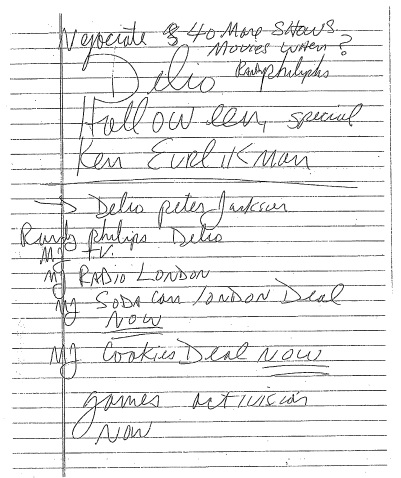 Negociate 40 More Shows
Movies When?
Delio Randy philiphs
Halloween, special
Ken
→ Delio peter Jackson
Randy philips Delio
MJ T.V.
MJ RADIO LONDON
MJ SODA Can LONDON Deal
NOW
MJ Cookies Deal NOW
games activision
Now